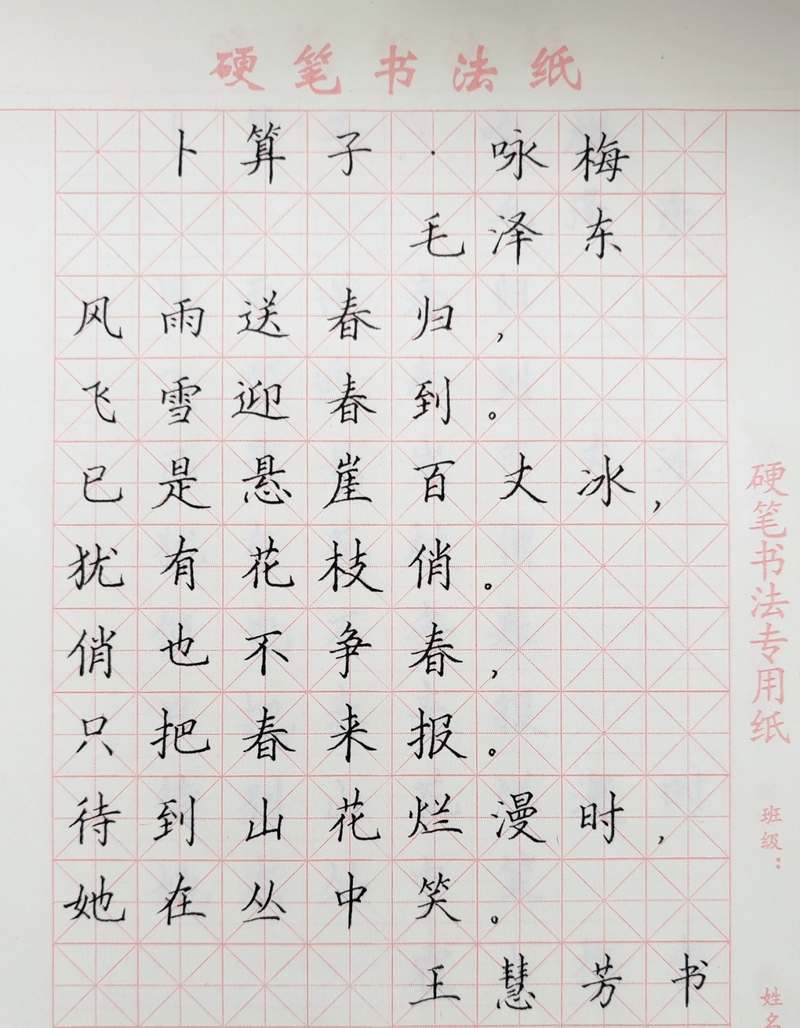 硬笔书法纸
卜算子·咏梅
毛泽东
风雨送春归，
飞雪迎春到。
已是悬崖百丈冰，
犹有花枝俏。
俏也不争春，
只把春来报。
待到山花烂漫时，
她在丛中笑。
王慧芳书
硬笔书法专用纸
班级：
姓名